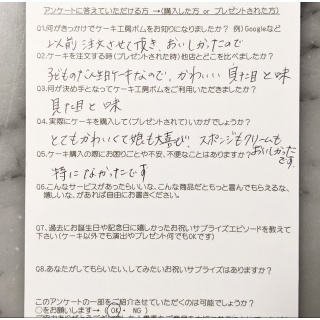 アンケートに答えていただける方 →(購入した方 or プレゼントされた方)
01.何がきっかけでケーキ工房ボムをお知りになりましたか？ 例)Googleなど
以前注文させて頂き、おいしかったので
02.ケーキを注文する時(プレゼント時)他店とどこを比べましたか？
子どものたん生日ケーキなので、かわいい見た目と味
03.何が決め手となってケーキ工房ボムをご利用いただきましたか？
見た目と味
04.実際にケーキを購入して→(プレゼントされて)いかがでしょうか？
とてもかわいくて娘も大喜び、スポンジもクリームも
おいしかったです。
05.ケーキ購入の際にお困りごとや不安、不便なことはありますか？
特になかったです
06.こんなサービスがあったらいいな、こんな商品だともっと喜んでもらえるな、
嬉しいな、があれば自由にお書きください。
07.過去にお誕生日や記念日に嬉しかったお祝いサプライズエピソードを教えて
下さい(ケーキ以外でも演出やプレゼント何でもOKです)
08.あなたがしてもらいたい、してみたいお祝いサプライズはありますか？
このアンケートの一部をご紹介させていただくのは可能でしょうか？
○をお願いします→ (OK)・ NG )